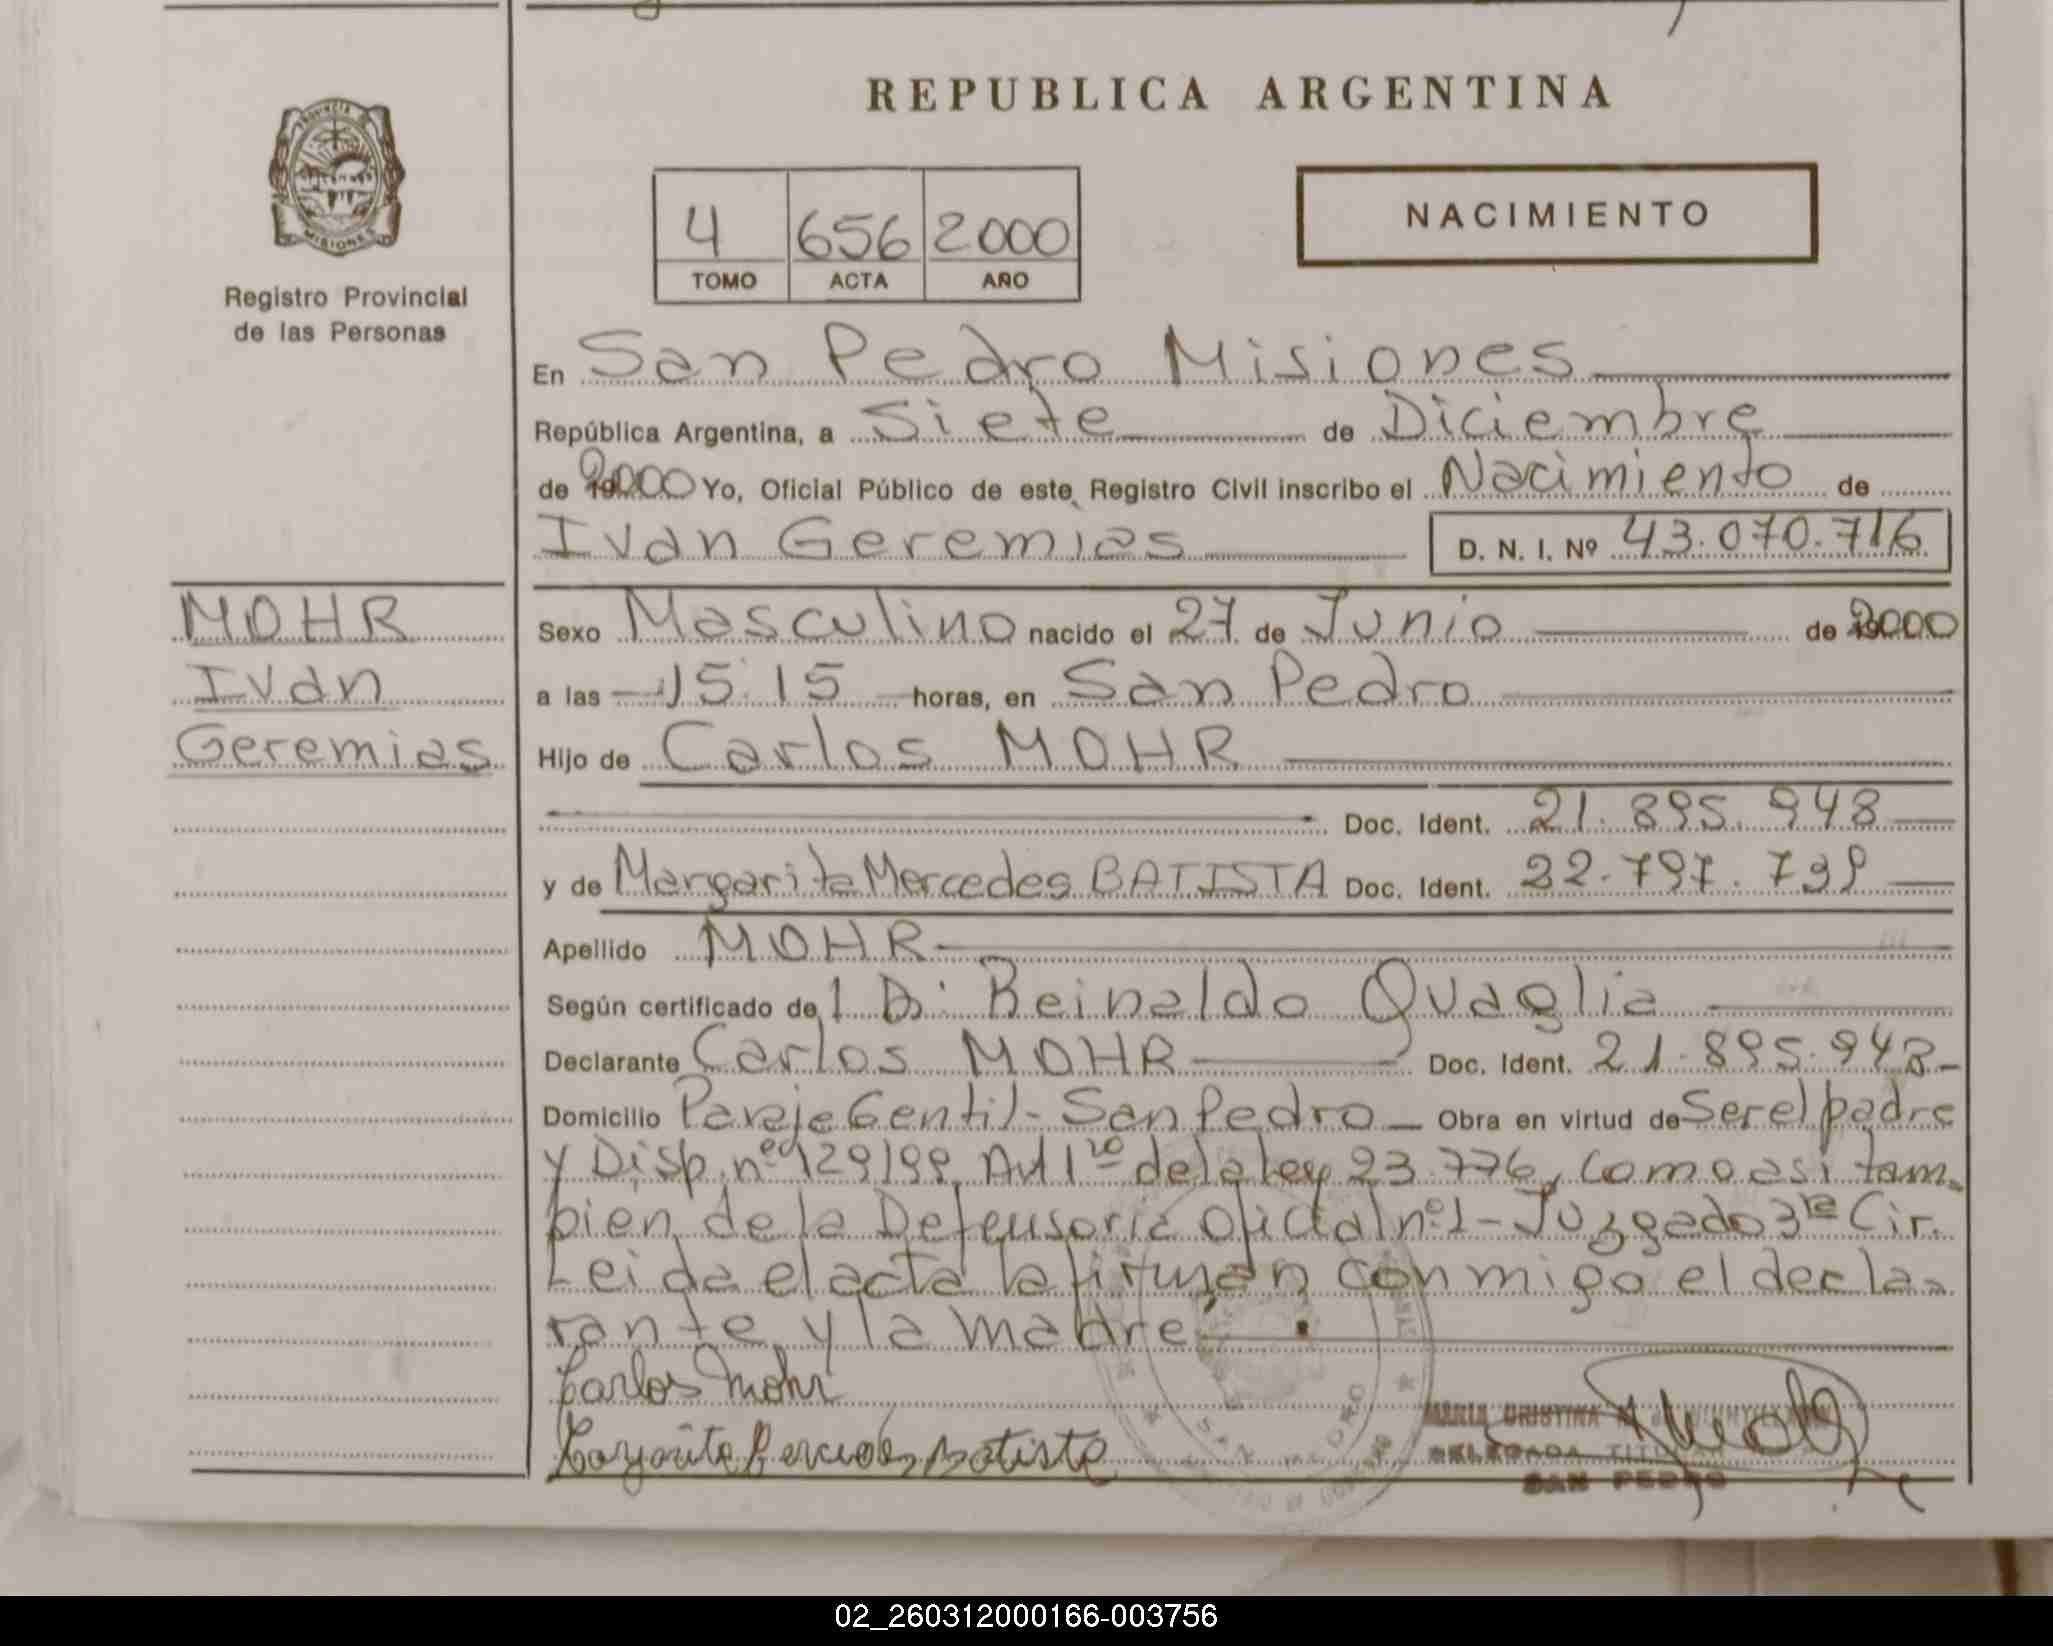 REPUBLICA ARGENTINA
PROVINCIA DE
MISIONES
Registro Provincial
de las Personas
4 656 2000
TOMO ACTA AÑO
NACIMIENTO
En San Pedro Misiones
República Argentina, a Siete de Diciembre
de 2000 Yo, Oficial Público de este Registro Civil inscribo el Nacimiento de
Ivan Geremias D. N. I. Nº 43.070.716
MOHR
Ivan
Geremias
Sexo Masculino nacido el 27 de Junio de 2000
a las 15:15 horas, en San Pedro
Hijo de Carlos MOHR
Doc. Ident. 21.895.948
y de Margarita Mercedes BATISTA Doc. Ident. 22.797.739
Apellido MOHR
Según certificado del Dr. Reinaldo Quaglia
Declarante Carlos MOHR Doc. Ident. 21.895.948-
Domicilio Paraje Gentil - San Pedro Obra en virtud de Ser el padre
y Disp. nº 129/99 Art 1ro de la ley 23.776, como asi tam-
bien de la Defensoria oficial nº1 - Juzgado 3ra Cir.
Leida el acta la firman conmigo el decla-
rante y la madre.
Carlos Mohr
Margarita Mercedes Batista
MARIA CRISTINA
DELEGADA TITULAR
SAN PEDRO
SAN PEDRO
02_260312000166-003756